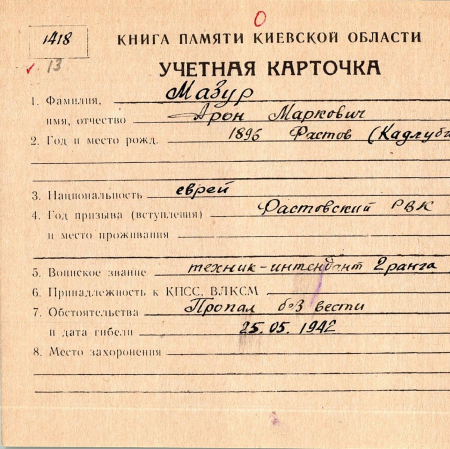 О
1418
КНИГА ПАМЯТИ КИЕВСКОЙ ОБЛАСТИ
v. 13
УЧЕТНАЯ КАРТОЧКА
1. Фамилия, Мазур
имя, отчество Арон Маркович
2. Год и место рожд. 1896 Фастов (Кадлуби
3. Национальность еврей
4. Год призыва (вступления) Фастовский РВК
и место проживания
5. Воинское звание техник-интендант 2 ранга
6. Принадлежность к КПСС, ВЛКСМ
7. Обстоятельства Пропал без вести
и дата гибели 25.05.1942
8. Место захоронения